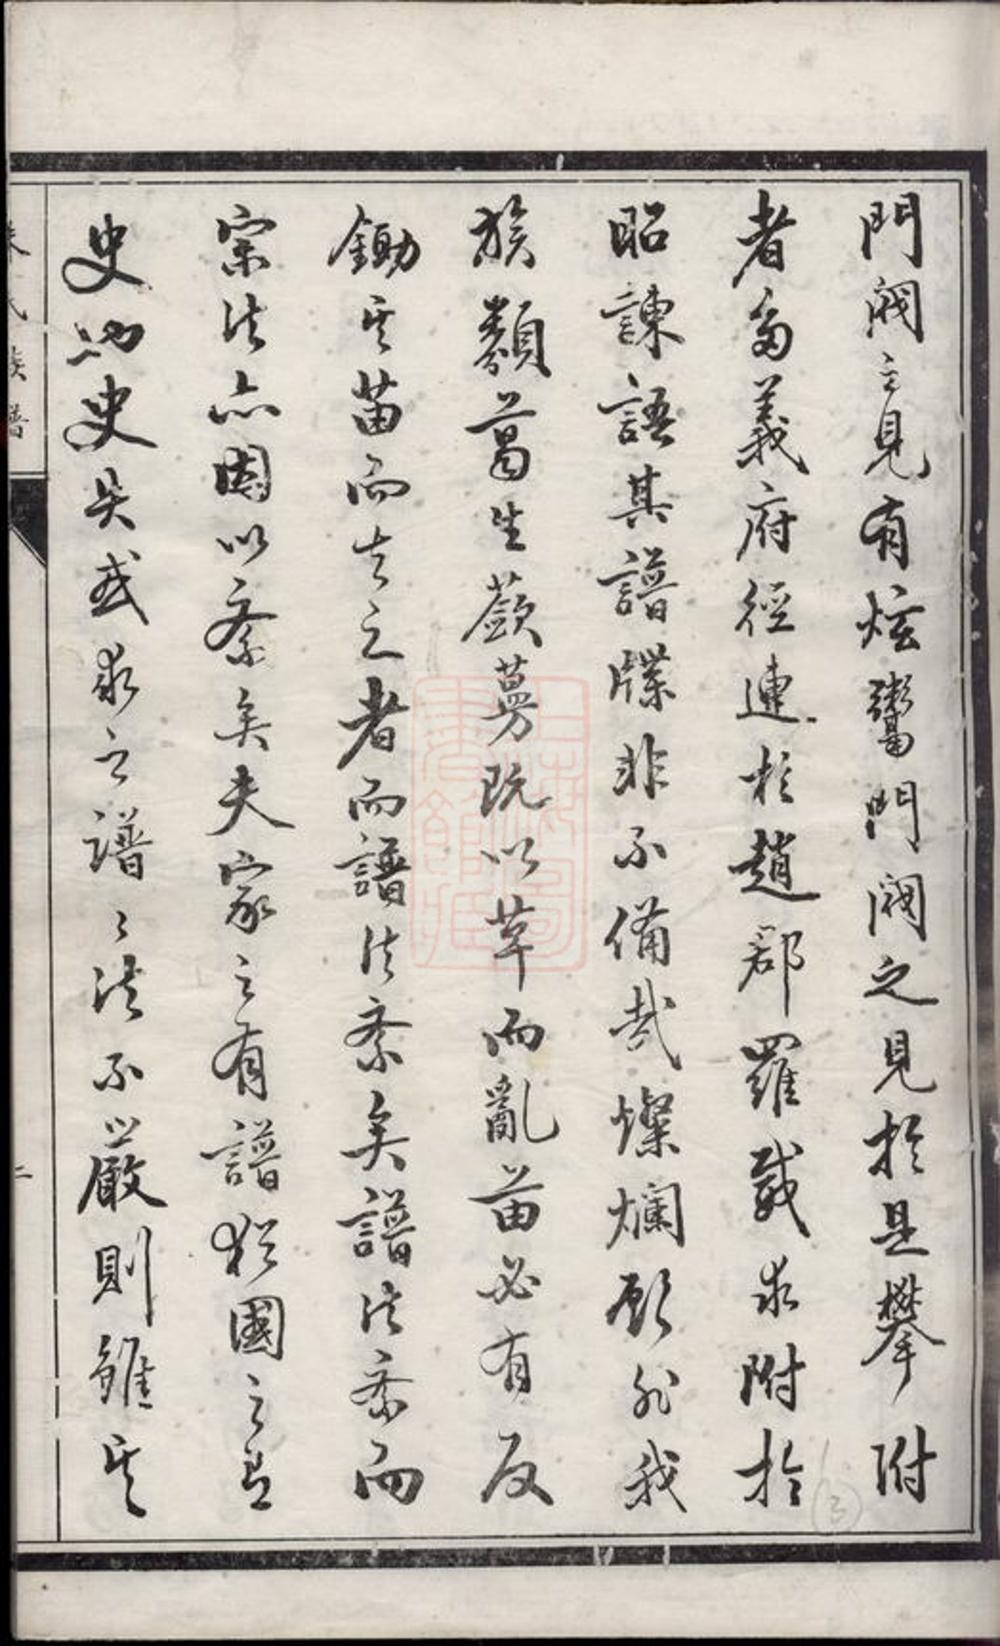 門閥之見有炫鬻門閥之見於是攀附
者多義府徑連於趙郡羅威求附於
昭諫語其譜牒非不備哉燦爛顧非我
族類葛生蘞蔓既以草而亂苗必有反
鋤其苗而去之者而譜法紊矣譜法紊而
宗法亦因以紊矣夫家之有譜猶國之有
史也史失或求之譜譜法不嚴則雖其
氏族譜
二
上海圖書館藏
3